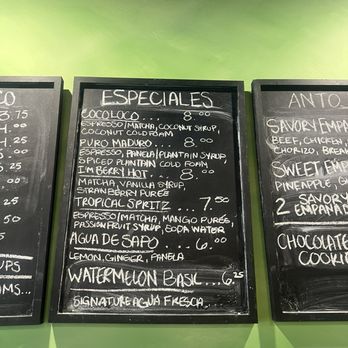 CO
3.75
UPS
AMS...
ESPECIALES
COCOLOCO... 8.00
ESPRESSO/MATCHA, COCONUT SYRUP,
COCONUT COLD FOAM
PURO MADURO... 8.00
ESPRESSO, PANELA/PLANTAIN SYRUP,
SPICED PLANTAIN COLD FOAM
I'M BERRY HOT. 8.00
MATCHA, VANILLA SYRUP,
STRAWBERRY PURÉE
TROPICAL SPRITZ... 7.50
ESPRESSO/MATCHA, MANGO PURÉE,
PASSION FRUIT SYRUP, SODA WATER
AGUA DE SAPO... 6.00
LEMON, GINGER, PANELA
WATERMELON BASIL...6.25
SIGNATURE AGUA FRESCA
ANTO
SAVORY EMPA
BEEF, CHICKEN,
CHORIZO, BREA
SWEET EMPA
PINEAPPLE, GU
2 SAVORY
EMPANADA
CHOCOLATE
COOKIE